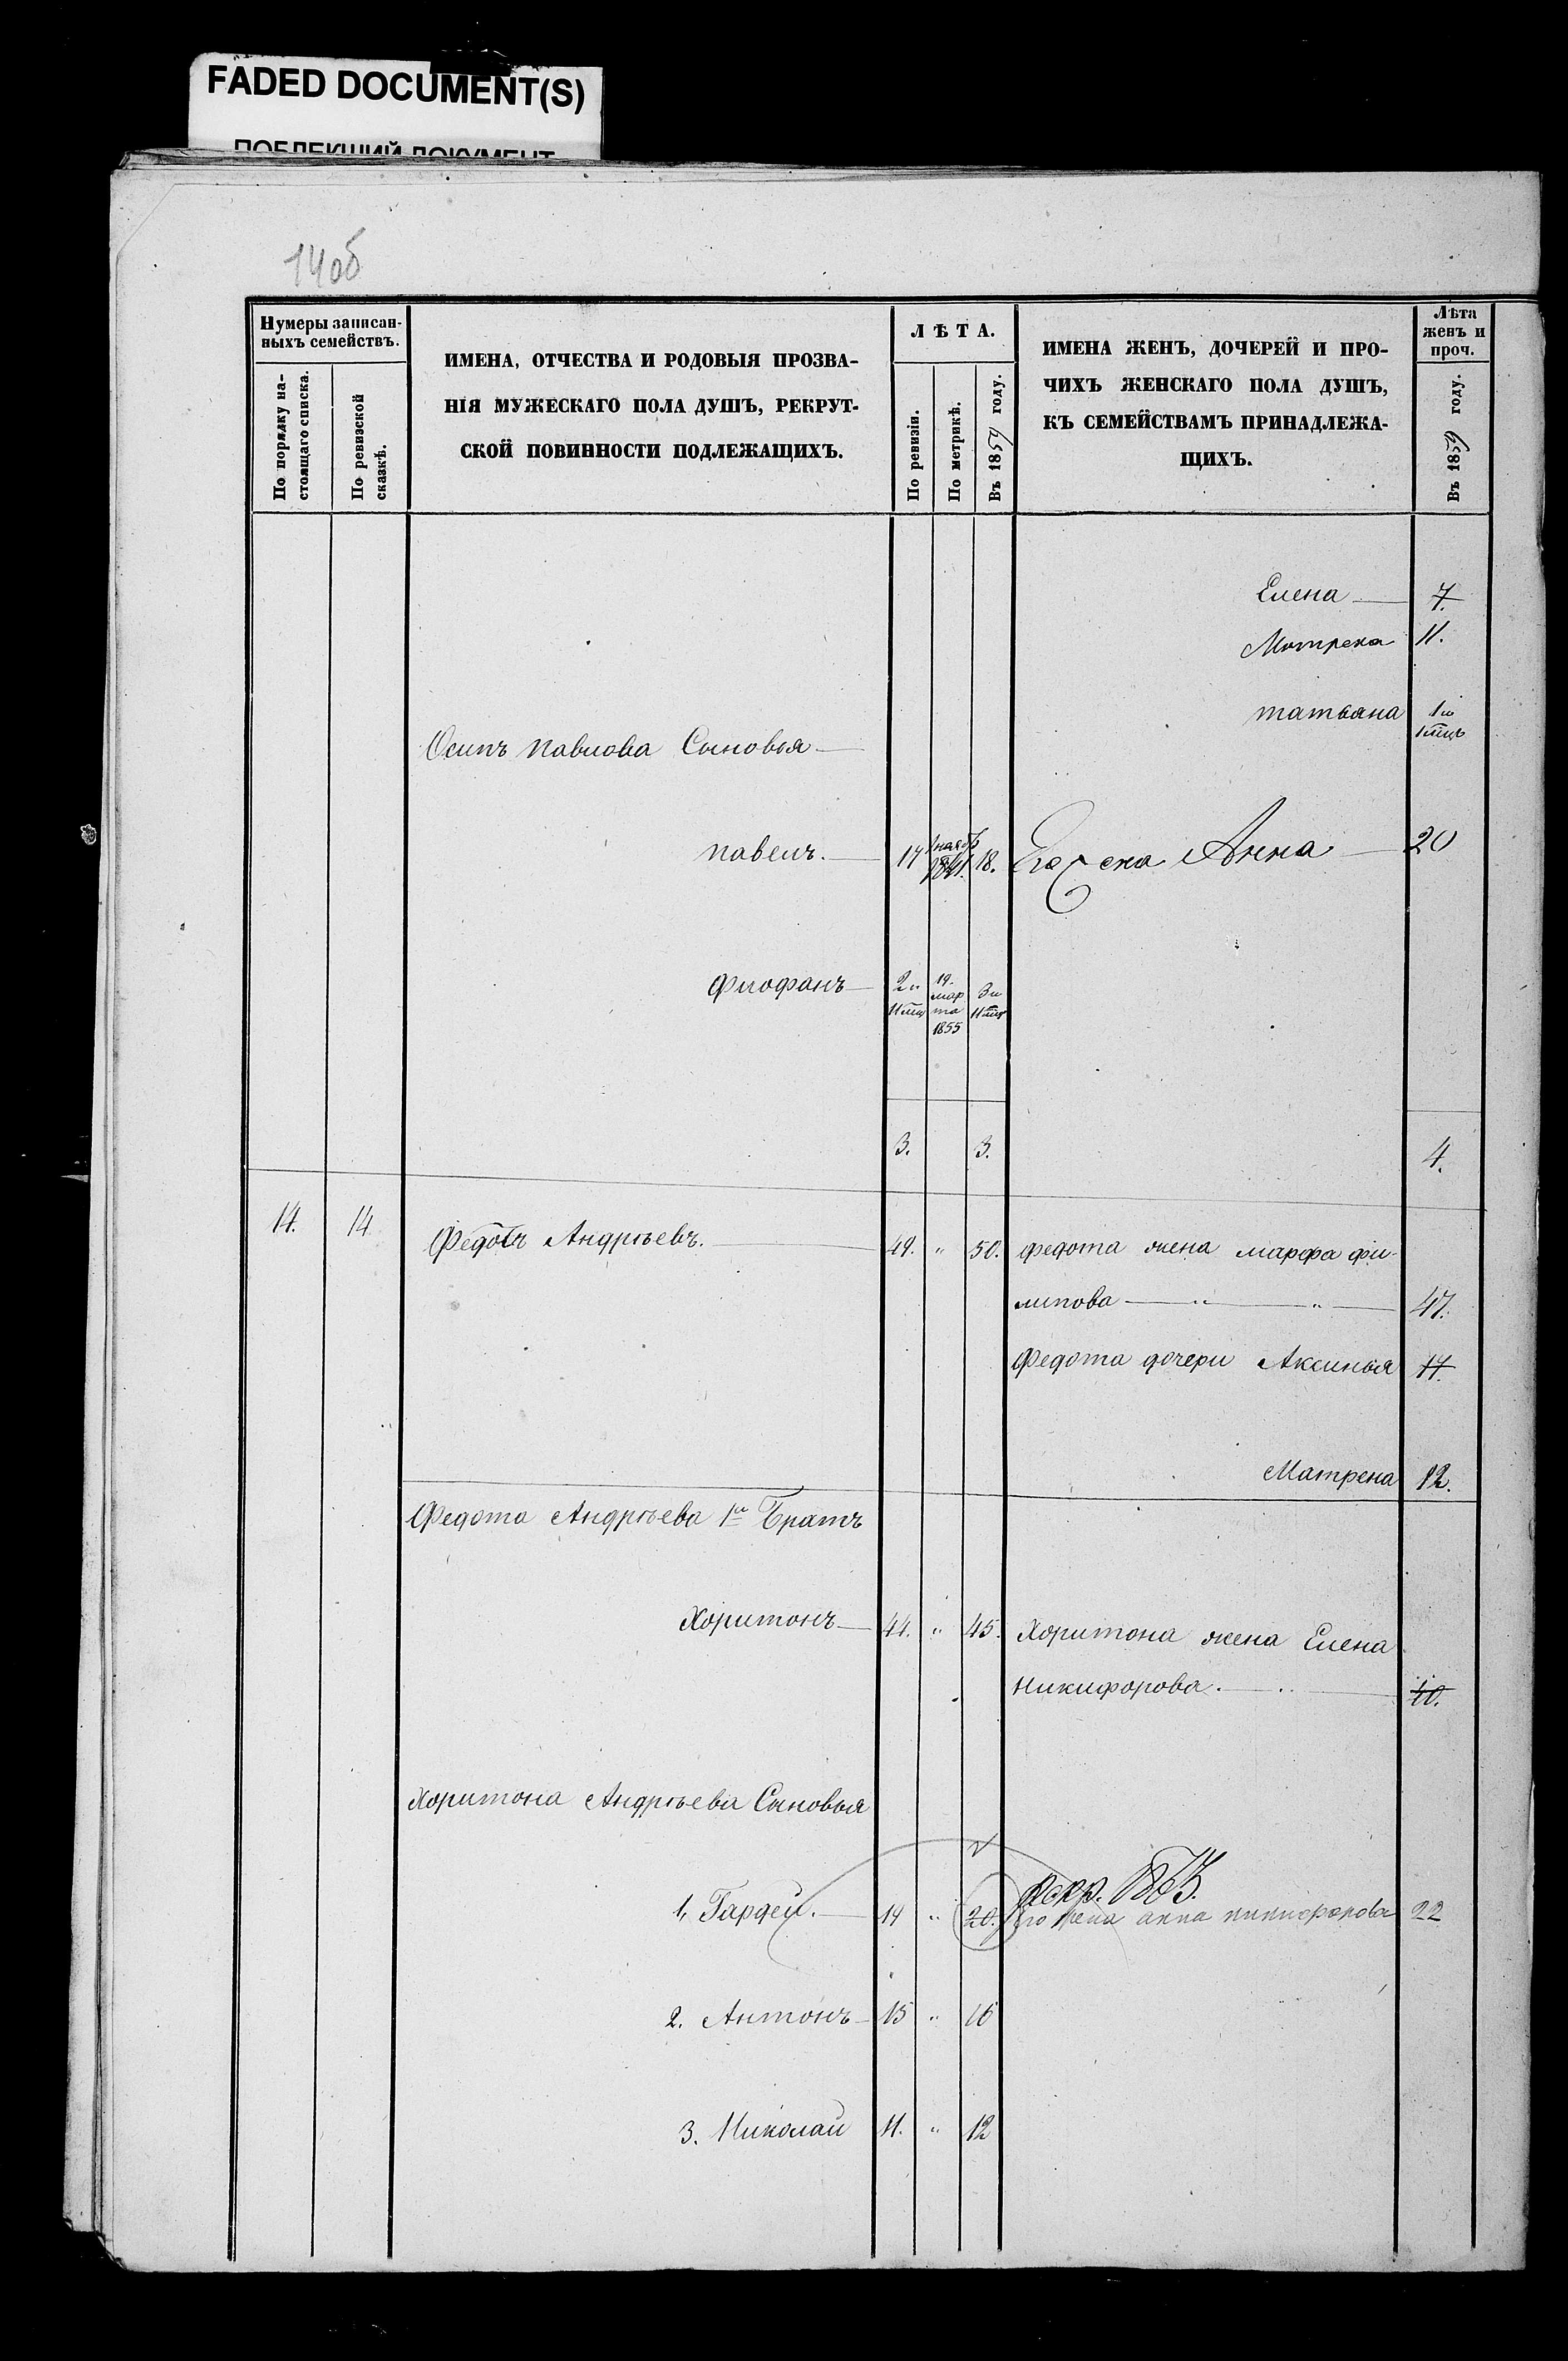 FADED DOCUMENT(S)
ПОБЛЕКШИЙ ДОКУМЕНТ
14об
Нумеры записан-
ныхъ семействъ.
По порядку на-
стоящаго списка.
По ревизской
сказкѣ.
ИМЕНА, ОТЧЕСТВА И РОДОВЫЯ ПРОЗВА-
НІЯ МУЖЕСКАГО ПОЛА ДУШЪ, РЕКРУТ-
СКОЙ ПОВИННОСТИ ПОДЛЕЖАЩИХЪ.
ЛѢТА.
По ревизіи.
По метрикѣ.
Въ 1859 году.
ИМЕНА ЖЕНЪ, ДОЧЕРЕЙ И ПРО-
ЧИХЪ ЖЕНСКАГО ПОЛА ДУШЪ,
КЪ СЕМЕЙСТВАМЪ ПРИНАДЛЕЖА-
ЩИХЪ.
Лѣта
женъ и
проч.
Въ 1859 году.
Елена 7.
Мотрена 11.
татьяна 1 и
1 мцъ
Осипъ павлова Сыновья
павелъ. 17 1841. 18. Его жена Анна 20
Фиофанъ 2 и 11 мц 19. мар
та 1855 3 и 11 мц
3. 3. 4.
14. 14 Федотъ Андрѣевъ. 49. " 50. федота жена марфа фи-
липова " " 47.
Федота дочери Аксинья 17.
Матрена 12.
Федота Андрѣева 1й Братъ
Хоритонъ 44. " 45. Хоритона жена Елена
Никифорова. 40.
Хоритона Андрѣева Сыновья
рекр. 1863.
1, Гардей. 19 " 20. Его жена анна никифорова 22
2. Антонъ 15 " 16
3. Николай 11. " 12